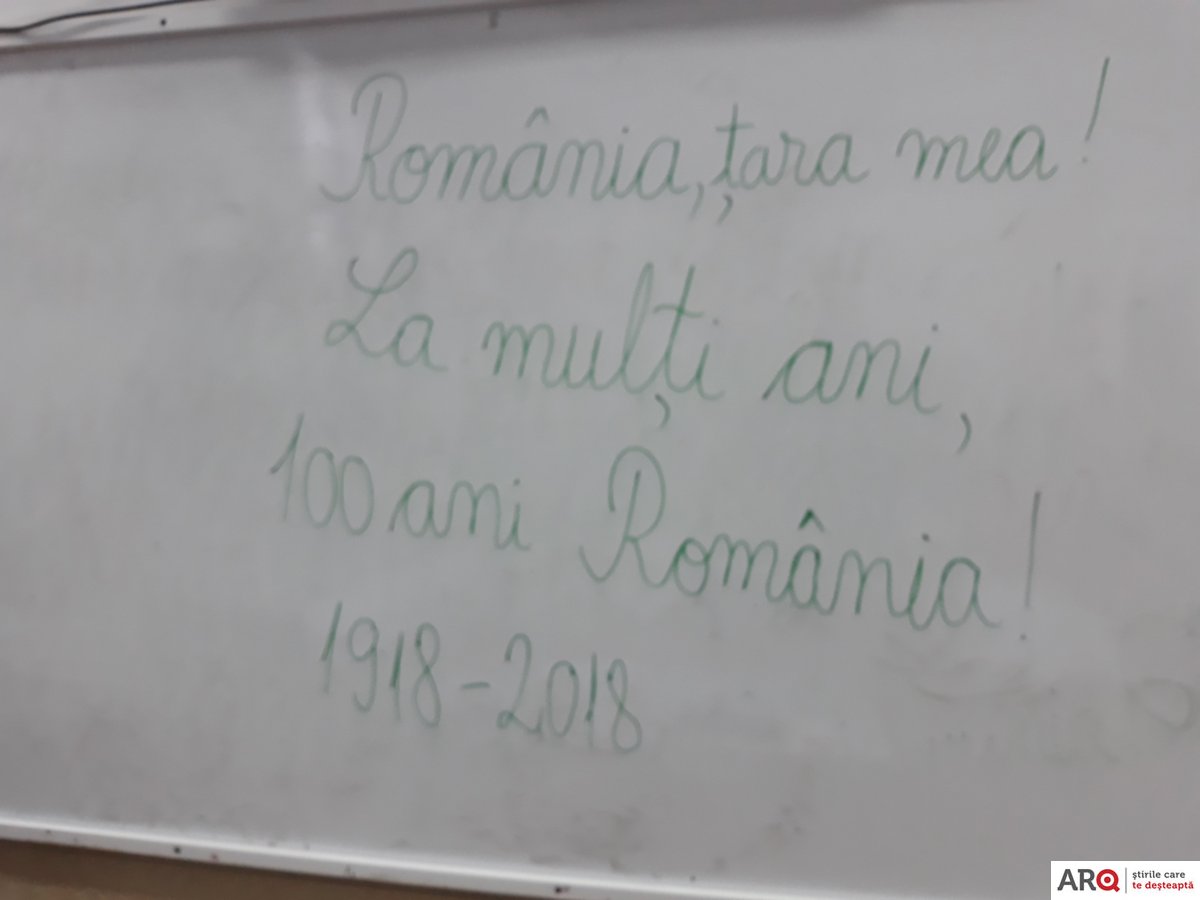 România, țara mea!
La mulți ani,
100 ani România!
1918-2018
ARQ
știrile care
te deșteaptă